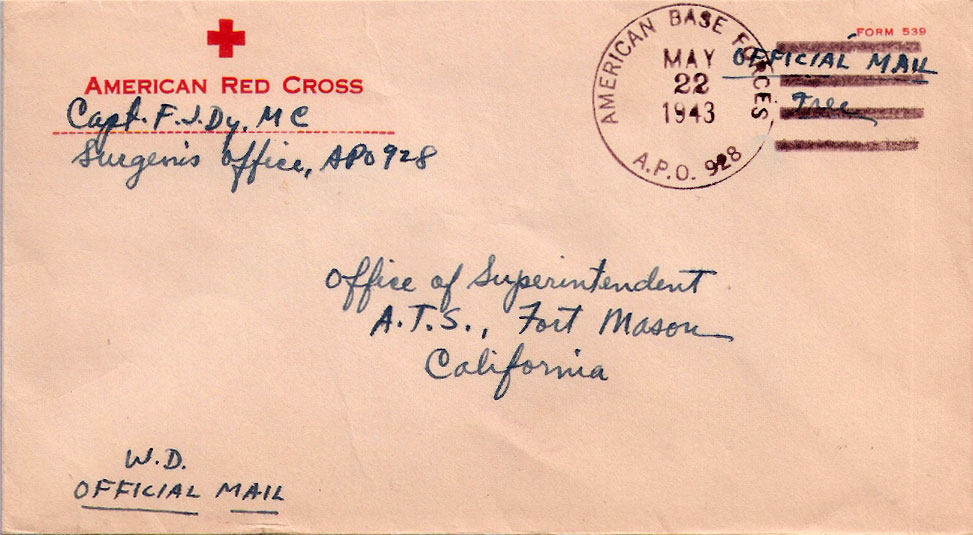 AMERICAN RED CROSS
Capt. F. J. Dy, MC
Surgeon's Office, APO 928
AMERICAN BASE FORCES
MAY
22
1943
A.P.O. 928
FORM 539
OFFICIAL MAIL
Free
Office of Superintendent
A.T.S., Fort Mason
California
W.D.
OFFICIAL MAIL